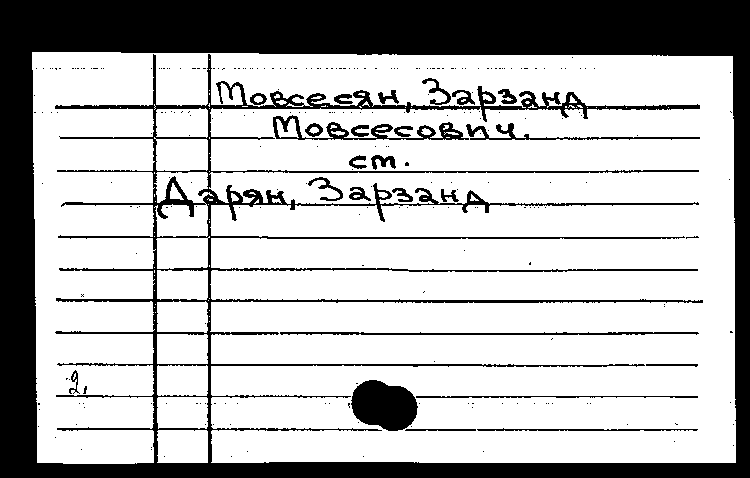 Мовсесян, Зарзанд
Мовсесович.
см.
Дарян, Зарзанд
2.